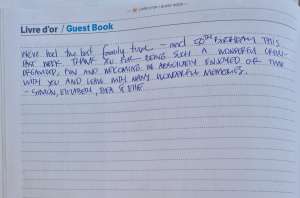 Livre d'or / Guest Book
We've had the best family time - and 50th BIRTHDAY THIS
PAST WEEK. THANK YOU FOR BEING SUCH A WONDERFUL
ORGANISED, FUN AND WELCOMING WE ABSOLUTELY ENJOYED OUR TIME
WITH YOU AND LEAVE WITH MANY WONDERFUL MEMORIES.
- SIMON, ELIZABETH, BEA & ELLIE